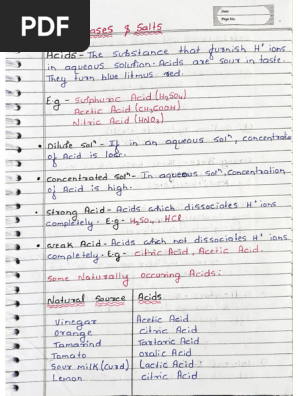 PDF
Date
Page No.
ases & Salts
Acids - The substance that furnish H⁺ ions
in aqueous solution. Acids are sour in taste.
They turn blue litmus red.
E.g - Sulphuric Acid (H₂SO₄)
Acetic Acid (CH₃COOH)
Nitric Acid (HNO₃)
• Dilute solⁿ - If in an aqueous solⁿ, concentrate
of Acid is low.
• Concentrated solⁿ - In aqueous solⁿ, concentration
of Acid is high.
• Strong Acid - Acids which dissociates H⁺ ions
completely. E.g - H₂SO₄, HCl
• weak Acid - Acids which not dissociates H⁺ ions
completely. E.g - Citric Acid, Acetic Acid.
Some Naturally occuring Acids:
Natural Source Acids
Vinegar Acetic Acid
Orange Citric Acid
Tamarind Tartaric Acid
Tomato Oxalic Acid
Sour milk (Curd) Lactic Acid
Lemon Citric Acid